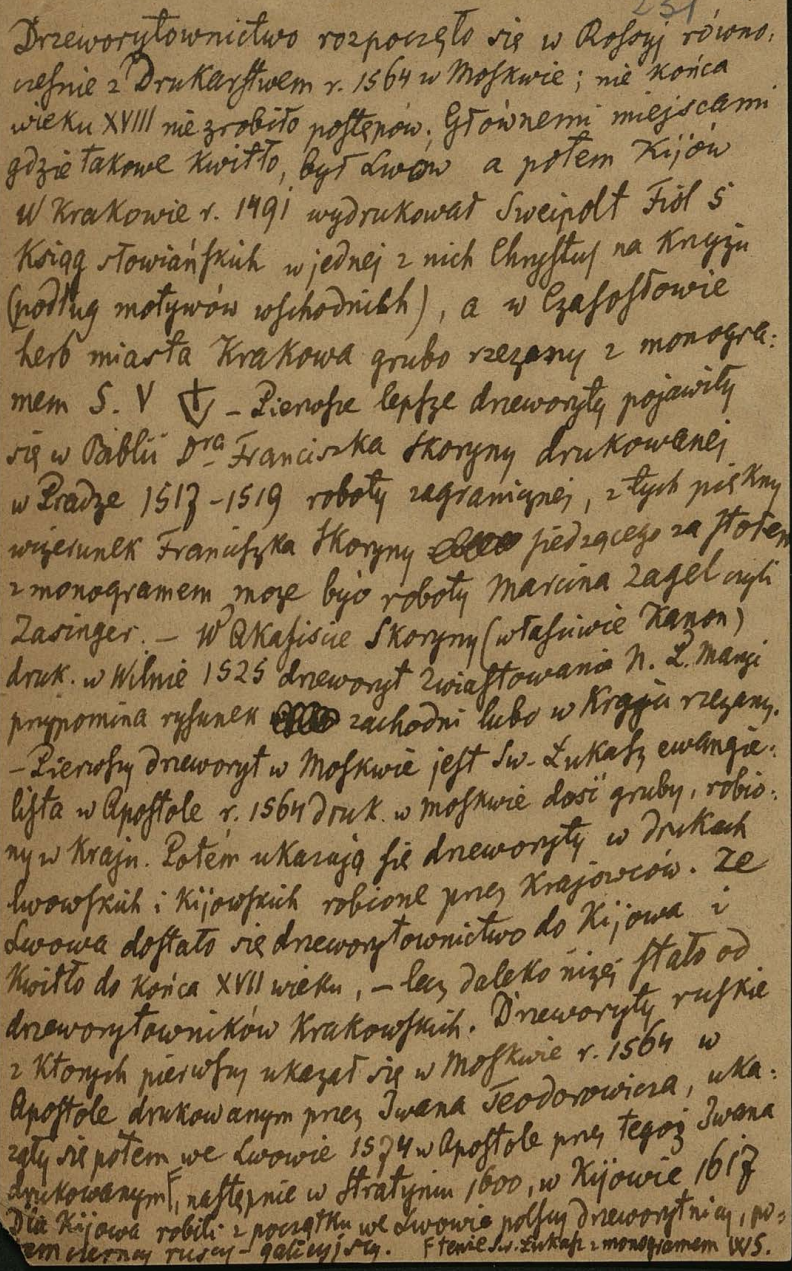 231
Drzeworytownictwo rozpoczęło się w Rossyj równo:
cześnie z Drukarstwem r. 1564 w Moskwie; nie końca
wieku XVIII nie zrobiło postępów. Głównemi miejscami
gdzie takowe kwitło, był Lwów a potem Kijów
W Krakowie r. 1491 wydrukował Sweipolt Fiol 5
Ksiąg słowiańskich w jednej z nich Chrystus na Krzyżu
(podług motywów wschodnich), a w Czasosłowie
herb miasta Krakowa grubo rzezany z monogra:
mem S. V – Pierwsze lepsze drzeworyty pojawiły
się w Biblii Dra Franciszka Skoryny drukowanej
w Pradze 1517–1519 roboty zagranicznej, z tych piękny
wizerunek Franciszka Skoryny siedzącego za stołem
z monogramem może być roboty Marcina Zagel czyli
Zasinger. – W Akafiscie Skoryny (właściwie Kanon)
druk. w Wilnie 1525 drzeworyt Zwiastowania N. Ł. Maryi
przypomina rysunek zachodni lubo w Kraju rzezany.
– Pierwszy drzeworyt w Moskwie jest Sw. Łukasz ewangie:
lista w Apostole r. 1564 druk. w Moskwie dość gruby, robio:
ny w Kraju. Potém ukazują się drzeworyty w drukach
lwowskich i Kijowskich robione przez Krajowców. Ze
Lwowa dostało się drzeworytownictwo do Kijowa i
Kwitło do końca XVII wieku, – lecz daleko niżej stało od
drzeworytowników Krakowskich. Drzeworyty ruskie
z których pierwszy ukazał się w Moskwie r. 1564 w
Apostole drukowanym przez Iwana Teodorowicza, uka:
zały się potem we Lwowie 1574 w Apostole przez tegoż Iwana
drukowanym F, następnie w Stratyniu 1600, w Kijowie 1617
Dla Kijowa robili z początku we Lwowie polscy drzeworytnicy, po:
tem czerncy ruscy – galicyjscy. F tenże Sw. Łukasz z monogramem WS.